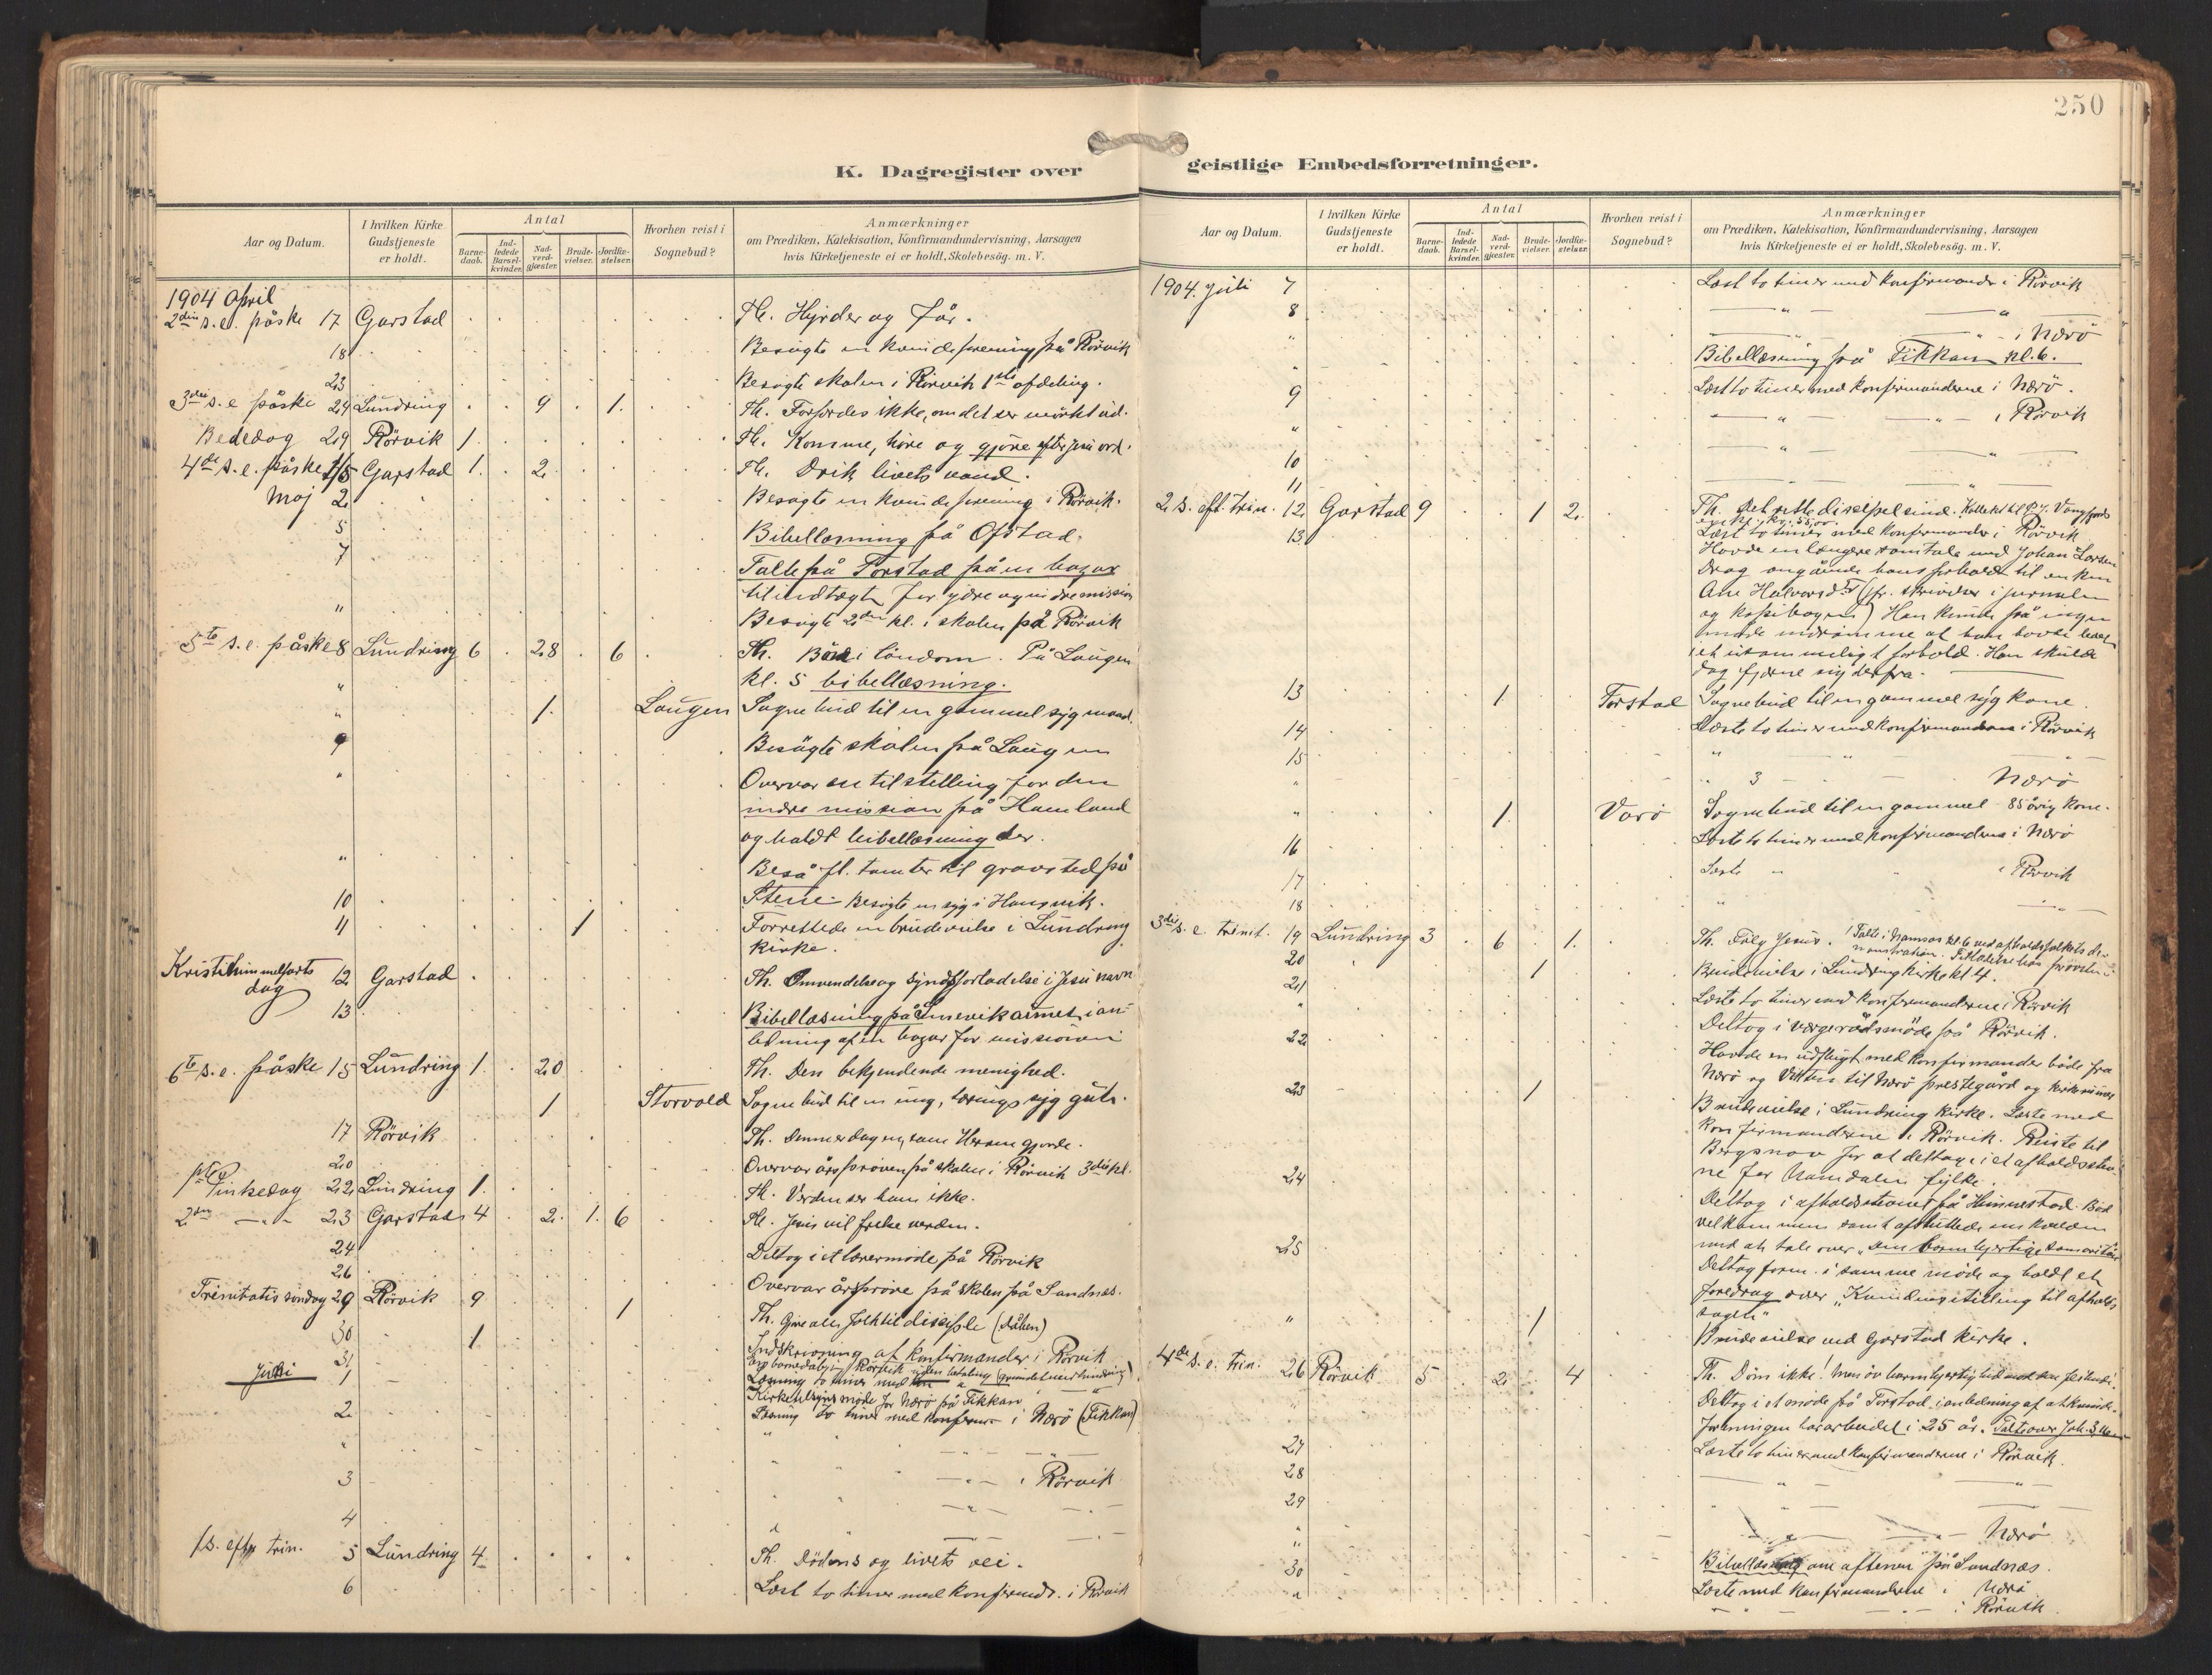 250
K. Dagregister over geistlige Embedsforretninger.
Aar og Datum.
I hvilken Kirke Gudstjeneste er holdt.
Antal
Barnedaab.
Indledede Barselkvinder.
Nadverdgjæster.
Brudevielser.
Jordfæstelser.
Hvorhen reist i Sognebud?
Anmærkninger
om Prædiken, Katekisation, Konfirmandundervisning, Aarsagen
hvis Kirketjeneste ei er holdt, Skolebesög. m. V.
1904 April
2den s. e. påske 17 Garstad Th. Hyrder og Får.
18 Besögte en kvindeforening på Rörvik
23 Besögte skolen i Rörvik 1ste afdeling.
3die s. e påske 24 Lundring 9 1. Th. Forfærdes ikke, om det ser mörkt ud.
Bededag 29 Rörvik 1. Th. Komme, höre og gjöre efter Jesu ord.
4de s. e. påske 1/5 Garstad 1. 2. Th. Drik livets vand.
Maj 2 Besögte en kvindeforening i Rörvik.
5 Bibellæsning på Ofstad.
7 Talte på Torstad på en bazar
til indtægt for ydre og indre mission
" Besögte 2den kl. i skolen på Rörvik
5te s. e. påske 8 Lundring 6 28 6 Th. Bön i löndom. På Laugen
kl. 5 bibellæsning.
" 1. Laugen Sognebud til en gammel syg mand.
9 Besögte skolen på Laugen
" Overvar en tilstelling for den
indre mission på Hamland
og holdt bibellæsning der.
" Beså fl. tomter til gravsted på
10 Steine Besögte en syg i Hansvik.
11 1 Forrettede en brudevielse i Lundring
kirke.
Kristi himmelfarts
dag 12 Garstad Th. Omvendelse og syndsforladelse i Jesu navn
13 Bibellæsning på Simevikarmet i an-
ledning af en bazar for missionen
6te s. e. påske 15 Lundring 1. 20 Th. Den bekjendende menighed.
1 Storvold Sognebud til en ung, tæringssyg gut.
17 Rörvik Th. Denne er dagen, som Herren gjorde.
20 Overvar årspröven på skolen i Rörvik 3die kl.
1ste Pinsedag 22 Lundring 1. Th. Verden ser ham ikke.
2den — " — 23 Garstad 4 2. 1. 6 Th. Jesus vil frelse verden.
24 Deltog i et læremöde på Rörvik
26 Overvar årspröve på skolen på Sandnæs.
Trinitatis söndag 29 Rörvik 9 1 Th. Gjöre alle folk til disciple (dåben)
30 1 Indskrivning af konfirmander i Rörvik
31
Juni 1 Læsning to timer med
Kirketilsynsmöde for Nærö på Fikkan
2 Læsning to timer med konfirm. i Nærö (Fikkan)
"
3 — " — i Rörvik
4 — " —
1 s. efter trin. 5 Lundring 4 Th. Dödens og livets vei.
6 Læst to timer med konfirmdr. i Rörvik
Aar og Datum.
I hvilken Kirke Gudstjeneste er holdt.
Antal
Barnedaab.
Indledede Barselkvinder.
Nadverdgjæster.
Brudevielser.
Jordfæstelser.
Hvorhen reist i Sognebud?
Anmærkninger
om Prædiken, Katekisation, Konfirmandundervisning, Aarsagen
hvis Kirketjeneste ei er holdt, Skolebesög. m. V.
1904. Juli 7 Læst to timer med konfirmander i Rörvik
8 — " — — " —
" — " — i Nærö
" Bibellæsning på Fikkan kl. 6.
9 Læst to timer med konfirmanderne i Nærö.
" — " — — " — i Rörvik
10 — " — — " —
11 — " —
2 s. eft. trin. 12 Garstad 9 1 2. Th. Det rette discipelsind.
13 Læst to timer med konfirmander i Rörvik
Havde en længere samtale med Johan Larsen
Drag angående hans forhold til enken
Ane Halvorsd. (jfr. skrivelser i jurnalen
og kopibogen) Han kunde på ingen
måde indrömme at have levet
i et usömmeligt forhold. Han skulde
dog fjerne sig derfra.
13 1 Torstad Sognebud til en gammel syg kone.
14 Læste to timer med konfirmanderne i Rörvik
15 " "
" " 3 Nærö
" 1 Varö Sognebud til en gammel 85 årig kone.
16 Læste to timer med konfirmanderne i Nærö
17 Læste " " i Rörvik
18 "
3die s. e. trinit. 19 Lundring 3 6 1. Th. Fölg Jesus. Talte i Namsos kl. 6 ved afholdsfolkets de-
monstration.
20 1 Brudevielse i Lundring kirke kl. 4.
21 Læste to timer med konfirmanderne i Rörvik
" Deltog i værgerådsmöde på Rörvik.
22 Havde en udflugt med konfirmander både fra
Nærö og Vikten til Nærö prestegård og kirkeruiner
23 1 Brudevielse i Lundring kirke. Læste med
konfirmanderne i Rörvik. Reiste til
Bergsnov for at deltage i et afholdsstev-
ne for Namdalen fylke.
24 Deltog i afholdsstevnet på Himnestad. Bad
velkommen samt afsluttede om kvelden
med at tale over "den barmhjertige samaritan
25 Deltog form. i samme möde og holdt et
foredrag over "Kvindens stilling til afholds-
sagen"
" 1 Brudevielse ved Garstad kirke.
4de s. e. trin. 26 Rörvik 5 2 4 Th. Döm ikke!
" Deltog i et möde på Torstad i anledning af at kvinde-
foreningen har arbeidet i 25 år. Talte over Joh. 3,16
27 Læste to timer med konfirmanderne i Rörvik.
28 — " — — " —
29 " —
" — " — — " — Nærö
30 Bibellæsning om aftenen på Sandnæs.
" Læste med konfirmanderne i Nærö
— " — — " — i Rörvik